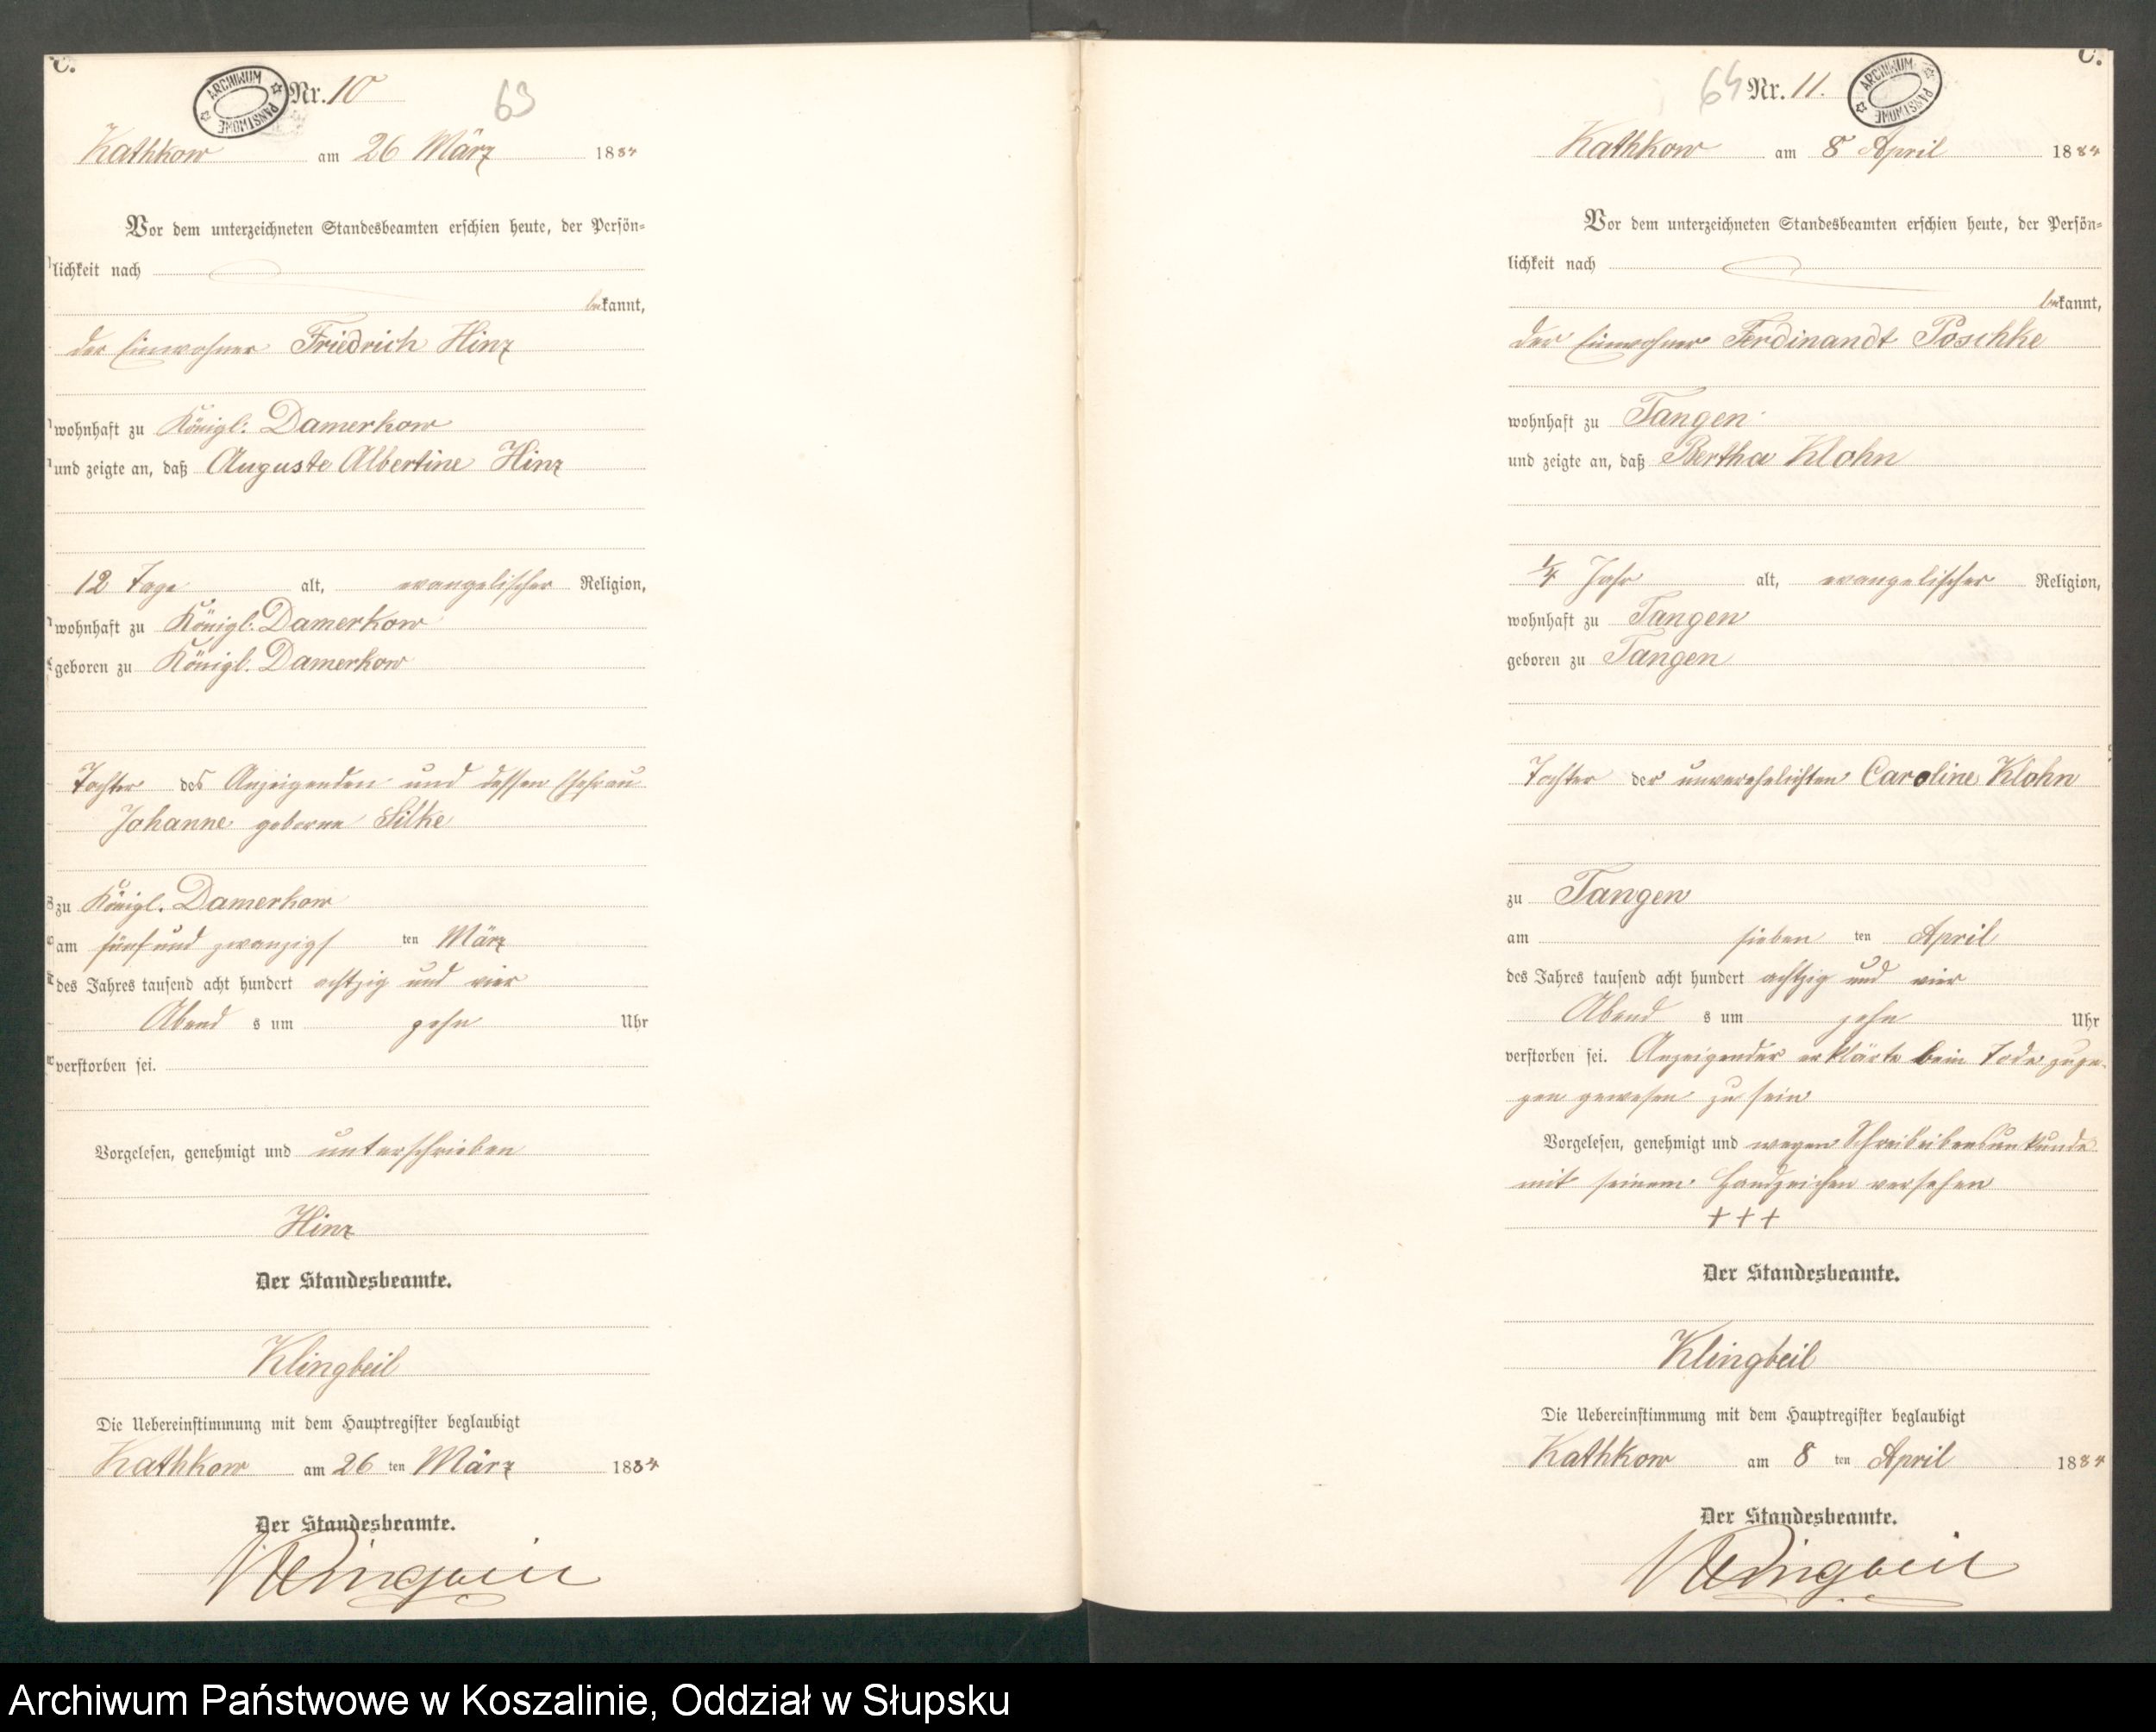 C.
ARCHIWUM PAŃSTWOWE
Nr. 10
63
Kathkow am 26 März 1884
Vor dem unterzeichneten Standesbeamten erschien heute, der Persön=
lichkeit nach
bekannt,
der Einwohner Friedrich Hinz
wohnhaft zu Königl: Damerkow
und zeigte an, daß Auguste Albertine Hinz
12 Tage alt, evangelischer Religion,
wohnhaft zu Königl. Damerkow
geboren zu Königl. Damerkow
Tochter des Anzeigenden und dessen Ehefrau
Johanne geborne Silke
zu Königl. Damerkow
am fünf und zwanzigs ten März
des Jahres tausend acht hundert achtzig und vier
Abend s um zehn Uhr
verstorben sei.
Vorgelesen, genehmigt und unterschrieben
Hinz
Der Standesbeamte.
Klingbeil
Die Uebereinstimmung mit dem Hauptregister beglaubigt
Kathkow am 26 ten März 1884
Der Standesbeamte.
Klingbeil
C.
64
Nr. 11.
ARCHIWUM PAŃSTWOWE
Kathkow am 8 April 1884
Vor dem unterzeichneten Standesbeamten erschien heute, der Persön=
lichkeit nach
bekannt,
der Einwohner Ferdinandt Poschke
wohnhaft zu Tangen
und zeigte an, daß Bertha Klohn
1/4 Jahr alt, evangelischer Religion,
wohnhaft zu Tangen
geboren zu Tangen
Tochter der unverehelichten Caroline Klohn
zu Tangen
am sieben ten April
des Jahres tausend acht hundert achtzig und vier
Abend s um zehn Uhr
verstorben sei. Anzeigender erklärte beim Tode zuge-
gen gewesen zu sein
Vorgelesen, genehmigt und wegen Schreibeibensunkunde
mit seinem Handzeichen versehen
+++
Der Standesbeamte.
Klingbeil
Die Uebereinstimmung mit dem Hauptregister beglaubigt
Kathkow am 8 ten April 1884
Der Standesbeamte.
Klingbeil
Archiwum Państwowe w Koszalinie, Oddział w Słupsku